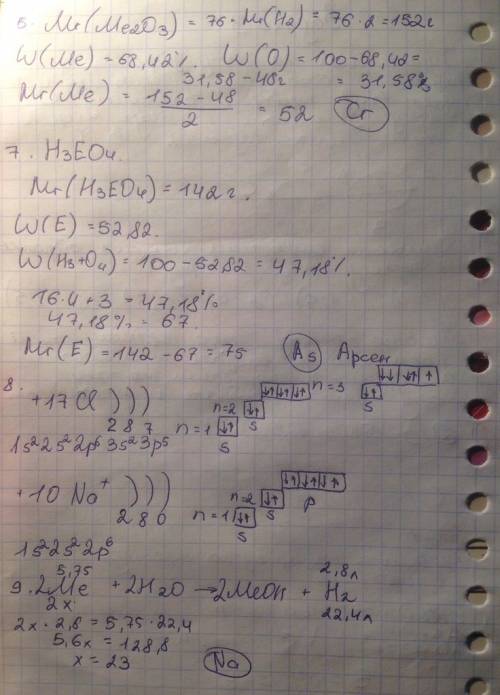 5. Mr(Me2O3) = 76 · Mr(H2) = 76 · 2 = 152г
W(Me) = 68,42%. W(O) = 100-68,42 =
31,58 - 48г = 31,58%
Mr(Me) = 152-48 / 2 = 52 Cr
7. H3EO4.
Mr(H3EO4) = 142 г.
W(E) = 52,82.
W(H3+O4) = 100-52,82 = 47,18%.
16·4+3 = 47,18%
47,18% = 67.
Mr(E) = 142-67 = 75 As Арсен
8.
+17 Cl ) ) )
2 8 7
n=1 ↓↑ S n=2 ↓↑ S ↓↑ ↓↑ ↓↑ n=3 ↓↑ S ↓↓ ↓↑ ↑
1s² 2s² 2p⁶ 3s² 3p⁵
+10 Na⁺ ) ) )
2 8 0
n=1 ↓↑ S n=2 ↓↑ S ↓↑ ↓↑ ↓↑ p
1s² 2s² 2p⁶
5,75 2,8л
9. 2Me + 2H2O → 2MeOH + H2
2x 22,4л
2x · 2,8 = 5,75 · 22,4
5,6x = 128,8
x = 23 Na